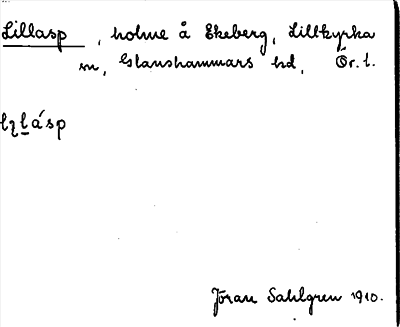 Lillasp, holme å Ekeberg, Lillkyrka
sn, Glanshammars hd, Ör. l.
lɩlásp
Jöran Sahlgren 1910.